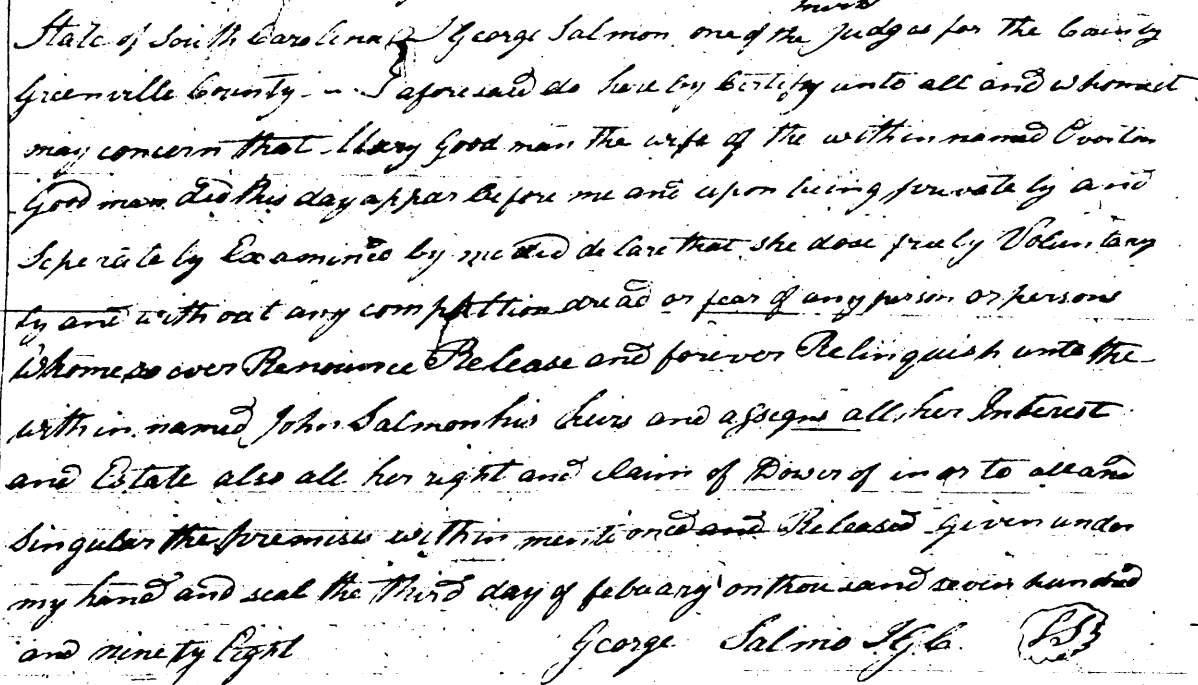 State of South Carolina } I George Salmon one of the Judges for the County
Greenville County - - } aforesaid do hereby Certify unto all and whom it
may concern that Mary Good man the wife of the within named Overton
Good man did this day appar before me and upon being privately and
Seperately Examined by me did declare that she dose freely Voluntary
ly and without any compultion dread or fear of any person or persons
Whomesoever Renounce Release and forever Relinquish unto the
within named John Salmon his heirs and assigns all her Interest
and Estate also all her right and Claim of Dower of in or to all and
Singular the premises within mentioned and Released Given under
my hand and seal the third day of febuary on thousand seven hundred
and ninety Eight George Salmo J G C. LS